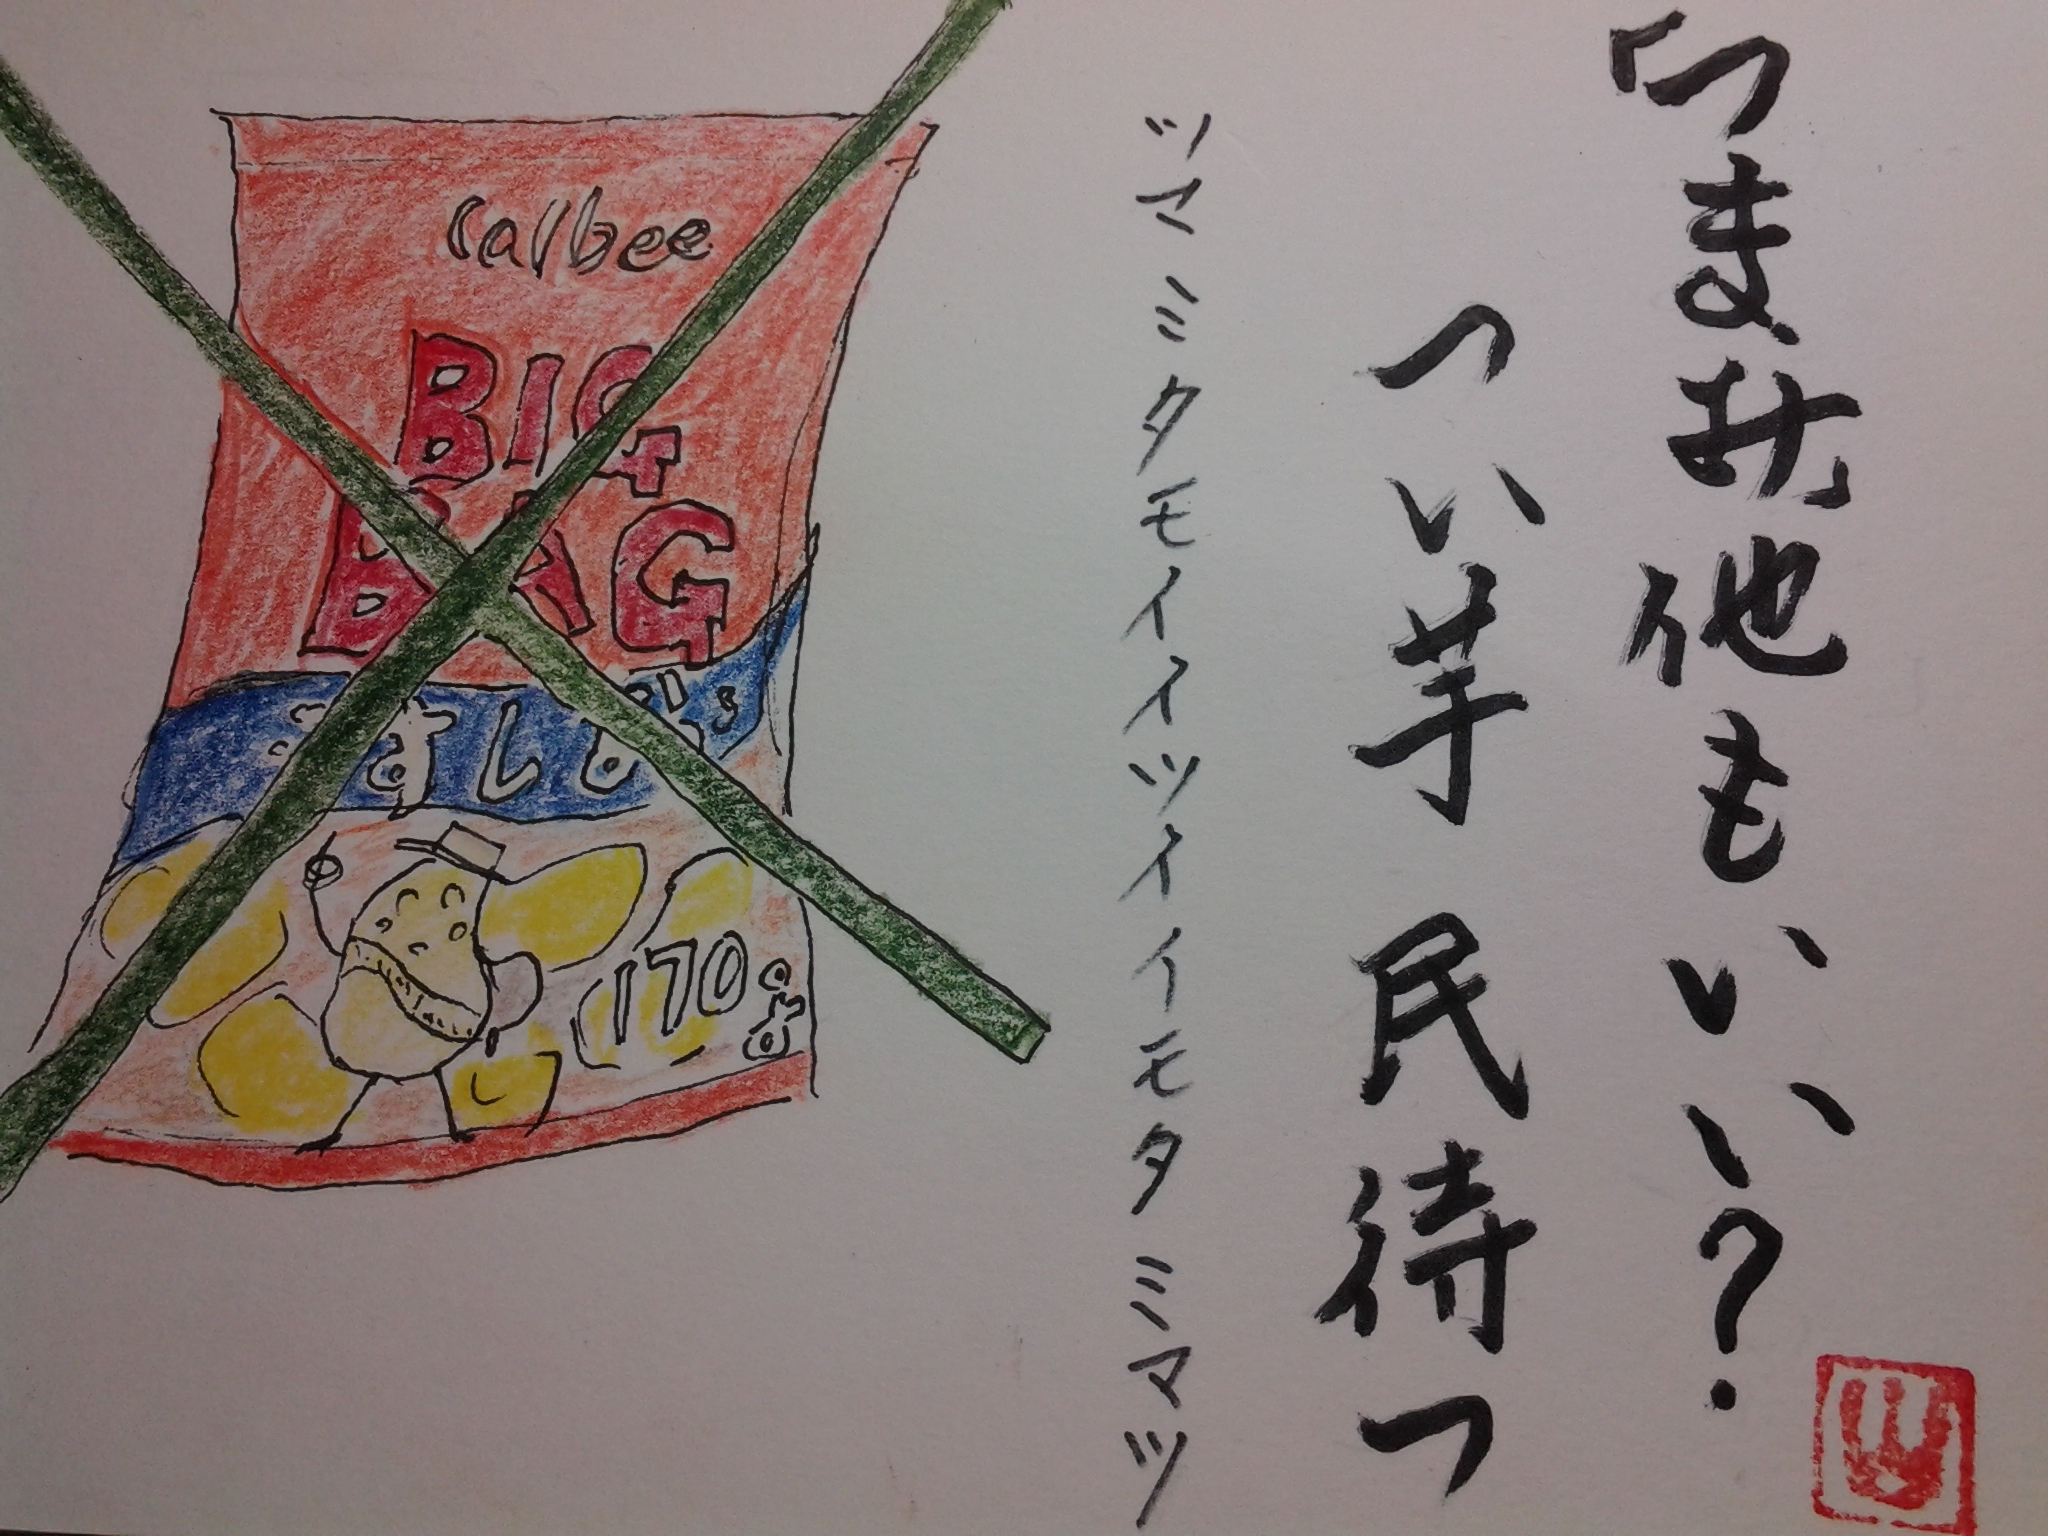 「つまみ」他もいい?
つい芋民待つ
ツマミタモイイツイイモタミマツ
calbee
BIG
BAG
うすしお
170g